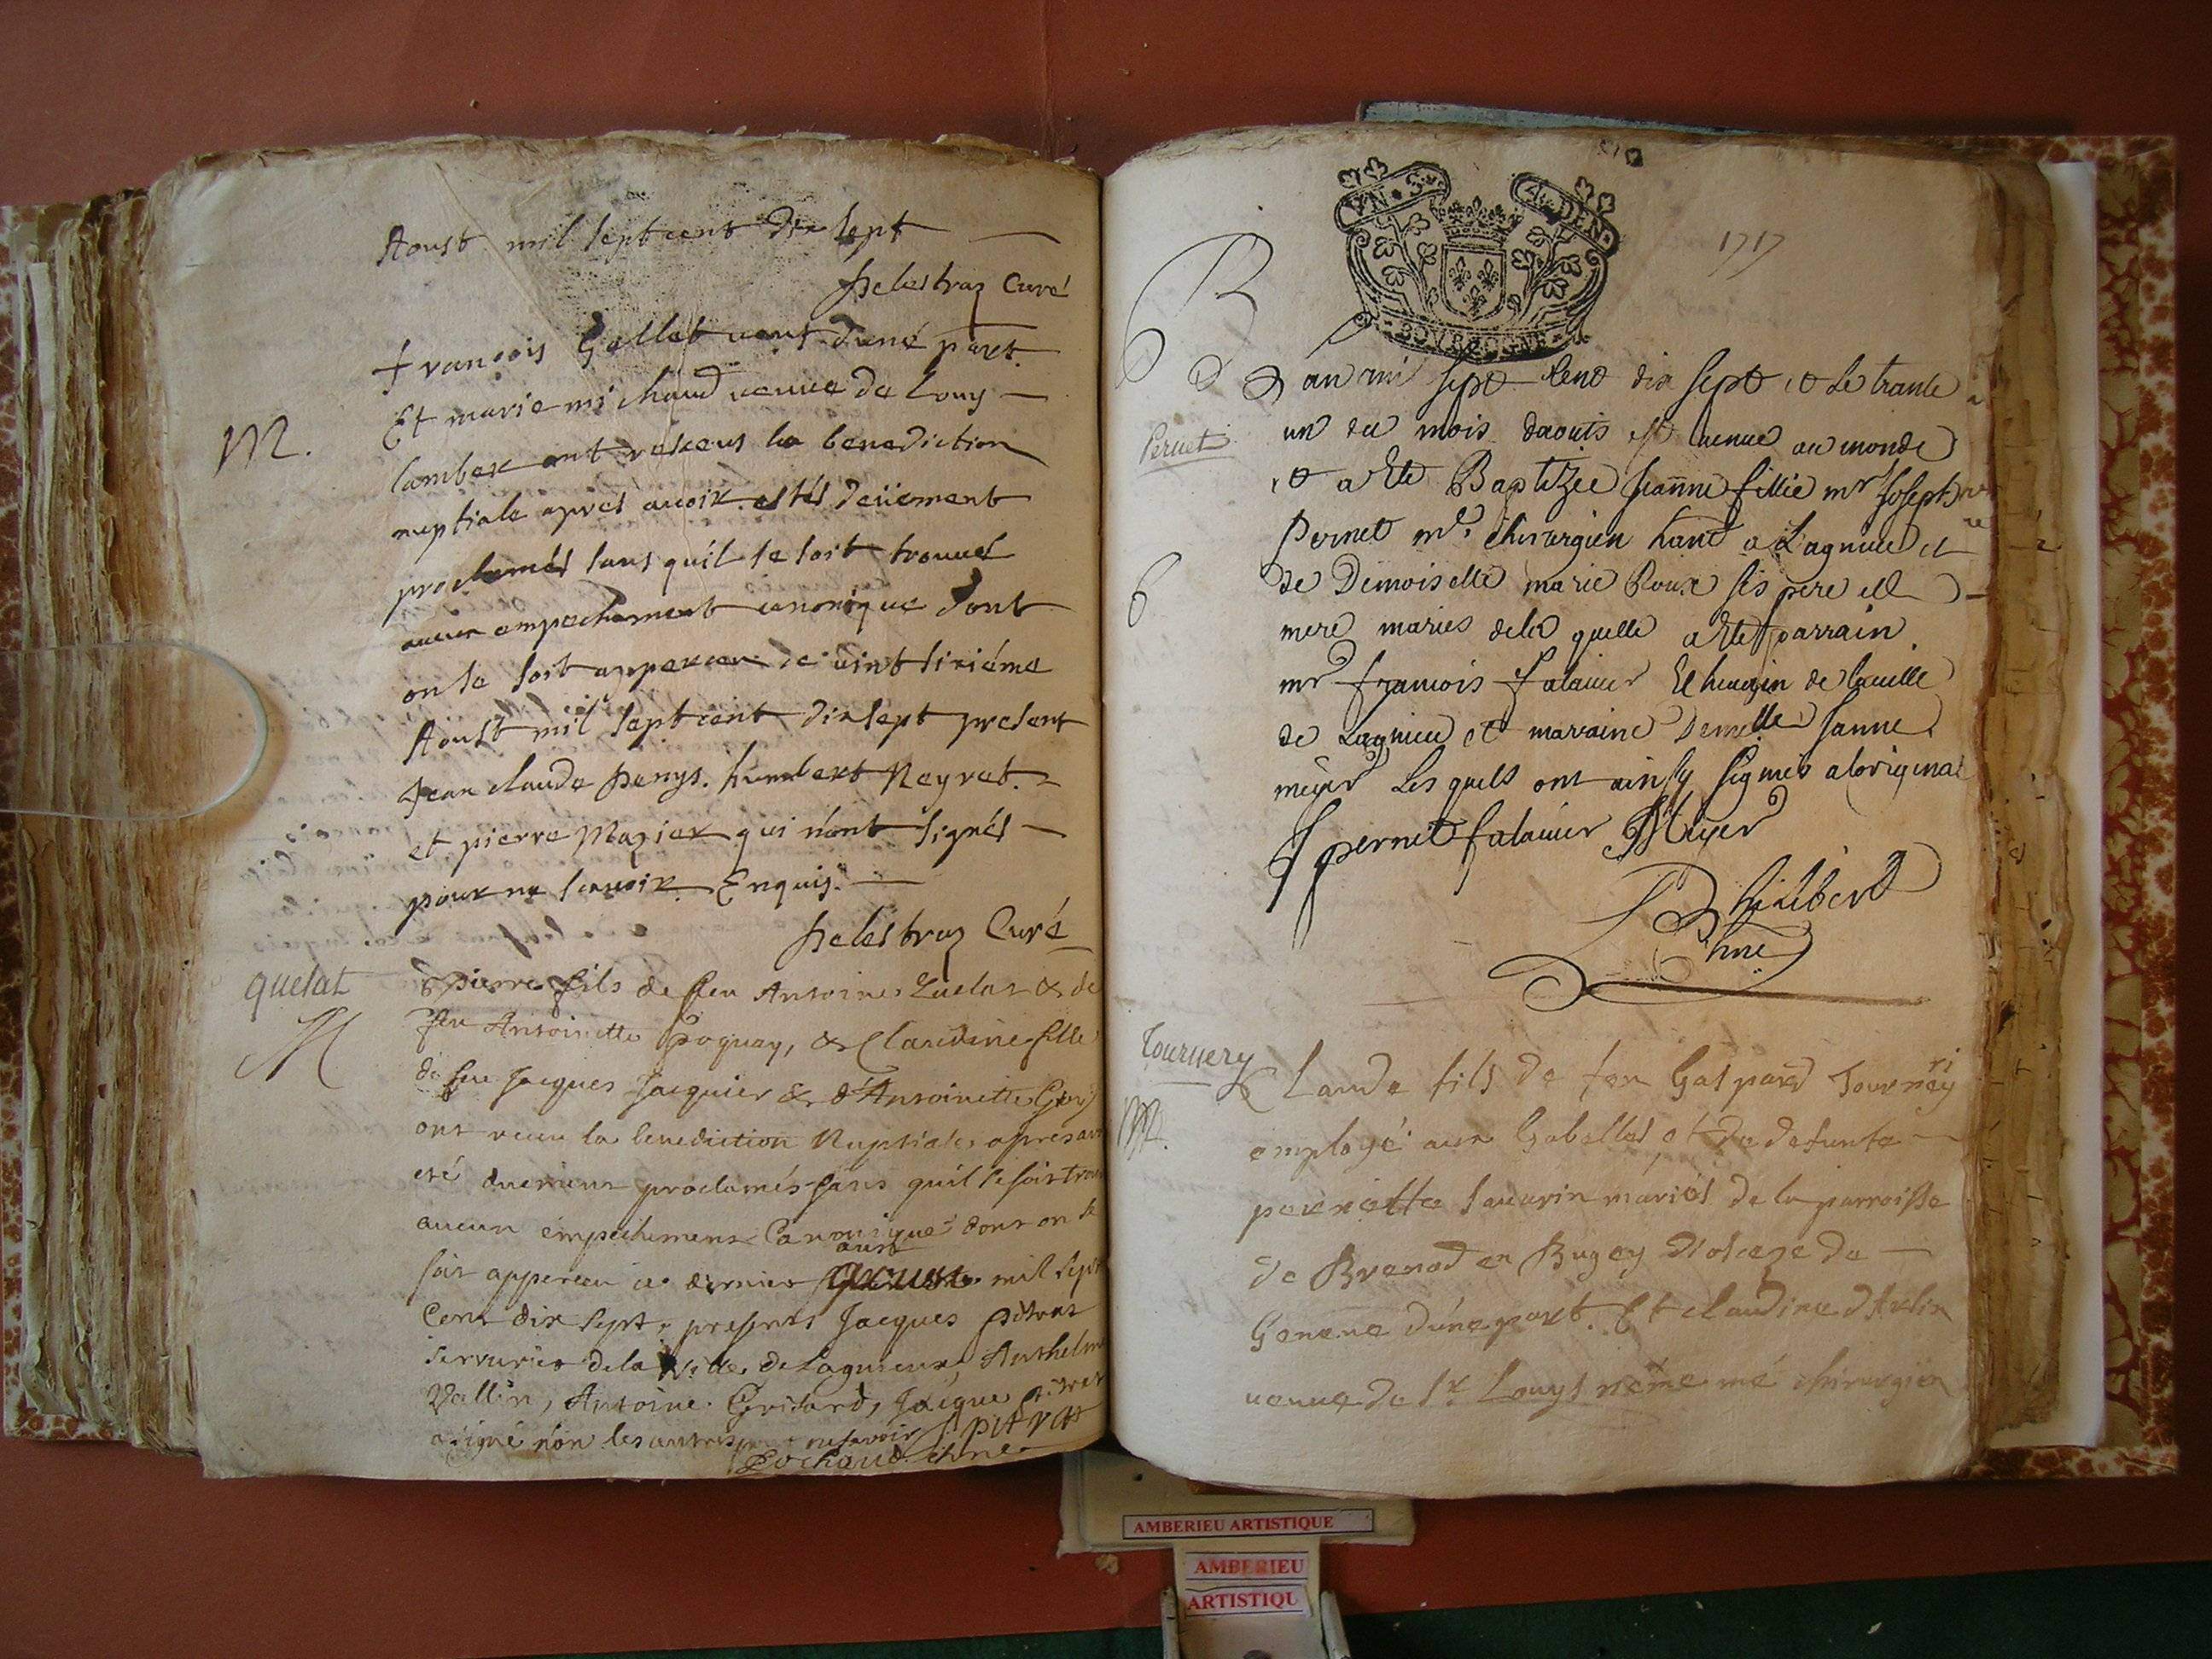 Aoust mil sept cent dix sept
Delestraz Curé
François Gallet veuf d'une part
Et marie michaud veuve de Louys
M.
lambert ont receus la benediction
nuptiale apres avoir estés deüement
proclamés sans qu'il se soit trouué
aucun empechement canonique dont
on se soit apperceu ce vint sixiéme
Aoust mil sept cent dix sept present
Jean claude Penys. humbert Neyret.
et pierre Mazier qui n'ont signés
pour ne scavoir Enquis.
Delestraz Curé
quelat
M
Pierre fils de feu Antoine Quelat & de
feu Antoinette Poguay, & Claudine fille
de feu Jacques Jacquier & d'Antoinette
ont receu la benediction Nuptiale apres
eté duement proclamés sans quil se soit
aucun empechement Canonique dont on se
aust
soit apperceu ce dernier mil sept
Cent dix sept, presents Jacques pitrat
serrurier de la Ville de Lagnieux, Anthelme
Vallin, Antoine Gridard, Jacque pitrat
a signé non les autres pour ne savoir J pitrat
Cochaud
1717
VN. S. 4. DEN
BOVRGOGNE
Pernet
B
L an mil sept cent dix sept et le trante
un du mois daouts est venue au monde
et a ete Baptizée Jeanne fillie mr Joseph
Pernet mre chirurgien hant a Lagnieu et
de Demoiselle marie Roux ses pere et
mere maries de la quelle a ete parrain
mr francois falavier Echevin de la ville
de Lagnieu et maraine Demelle Janne
meyer Les quels ont ainsy signes aloriginal
J pernet falavier J Meyer
Philibert
Tournery
M.
Claude fils de feu Gaspard Tournery
ri
employé aux Gabelles, et de defunte
pernette savarin mariés de la parroisse
de Brenod en Bugey diocese de
Geneve d'une part. Et claudine d'Arlin
veuve de Sr. Louys même mé chirurgien
AMBERIEU ARTISTIQUE
AMBERIEU
ARTISTIQU